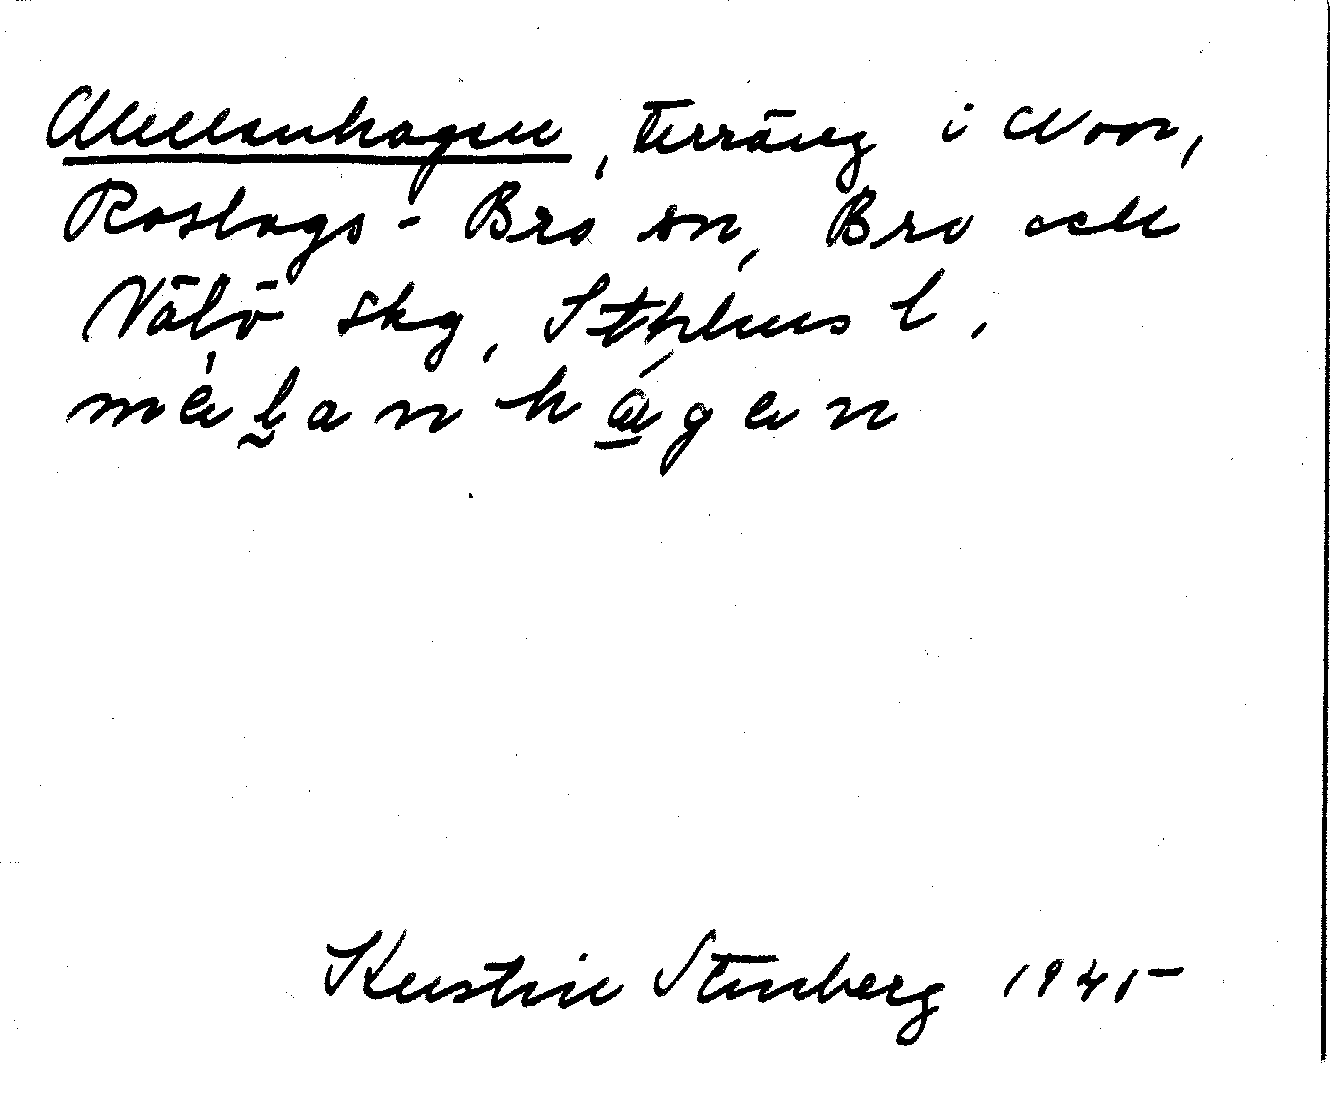 Mellanhagen, terräng i Noor,
Roslags-Bro sn, Bro och
Vätö skg, Sthlms l.
mèl̰anhá̲gen
Kerstin Stenberg 1945